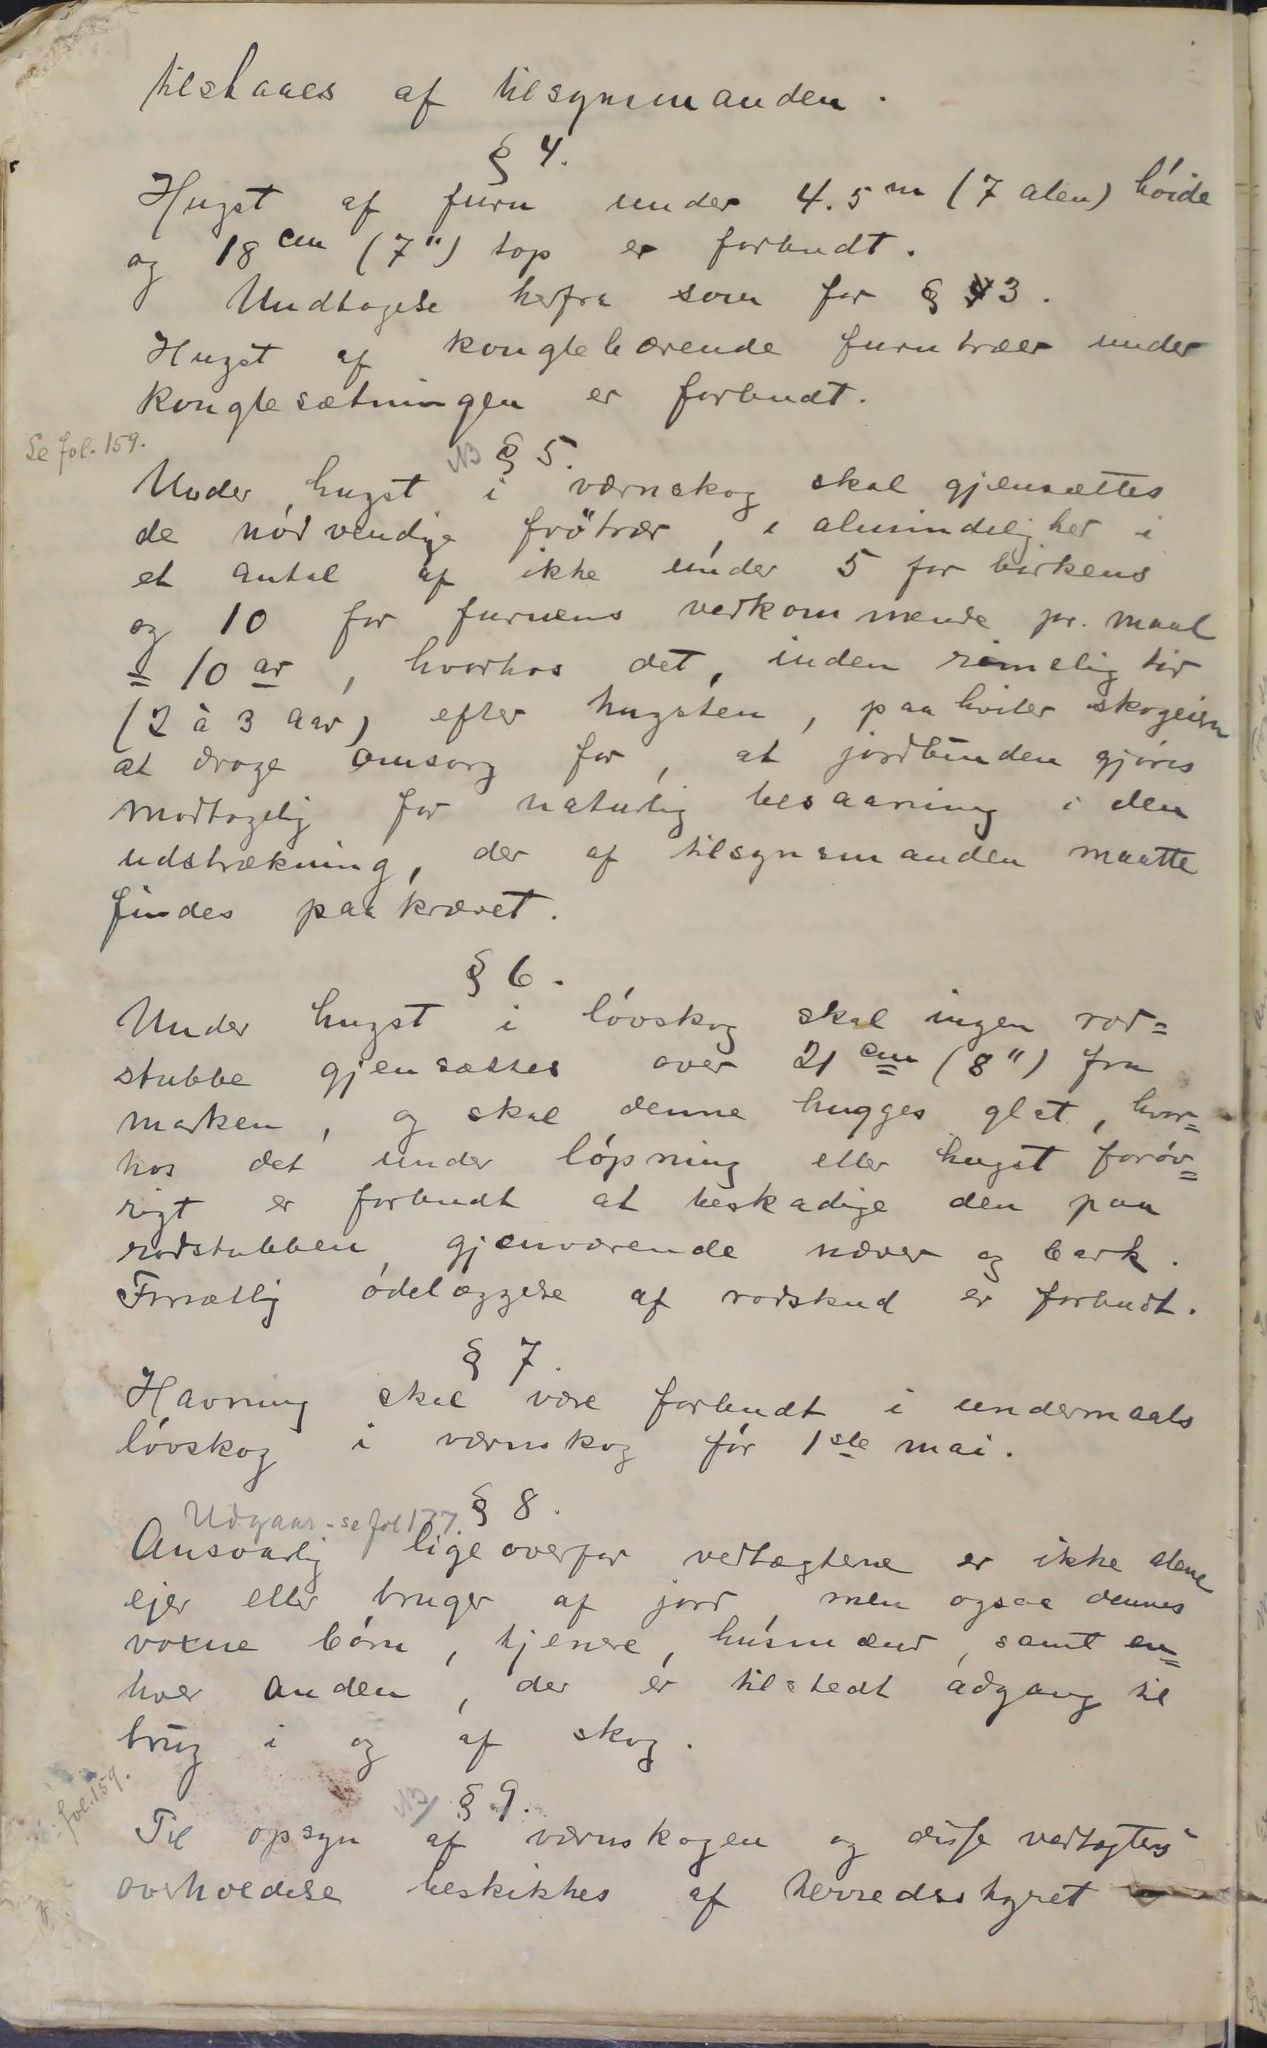 tilstaaes af tilsynsmanden.
§ 4.
Hugst af furu under 4.5 m (7 alen) høide
og 18 cm (7") top er forbudt.
Undtagelse herfra som for § 3.
Hugst af konglebærende furutræer under
konglesætningen er forbudt.
Se fol. 159.
NB § 5.
Under hugst i værnskog skal gjensættes
de nødvendige frøtrær, i almindelighed i
et antal af ikke under 5 for birkens
og 10 for furuens vedkommende pr. maal
= 10 ar, hvorhos det, inden rimelig tid
(2 à 3 aar) efter hugsten, paahviler skogeieren
at drage omsorg for, at jordbunden gjøres
modtagelig for naturlig besaaning i den
udstrækning, der af tilsynsmanden maatte
findes paakrævet.
§ 6.
Under hugst i løvskog skal ingen rod=
stubbe gjensættes over 21 cm (8") fra
marken, og skal denne hugges glat, hvor=
hos det under løpning eller hugst forøv=
rigt er forbudt at beskadige den paa
rodstubben gjenværende næver og bark.
Forsætlig ødelæggelse af rodskud er forbudt.
§ 7.
Havning skal være forbudt i undermaals
løvskog i værnskog før 1ste mai.
§ 8.
Udgaar - se fol 177.
Ansvarlig ligeoverfor vedtægterne er ikke alene
ejer eller bruger af jord, men ogsaa dennes
voxne børn, tjenere, husmænd, samt en=
hver anden, der er tilstedt adgang til
brug i og af skog.
fol. 159.
NB § 9.
Til opsyn af værnskogen og disse vedtægters
overholdelse beskikkes af herredsstyret